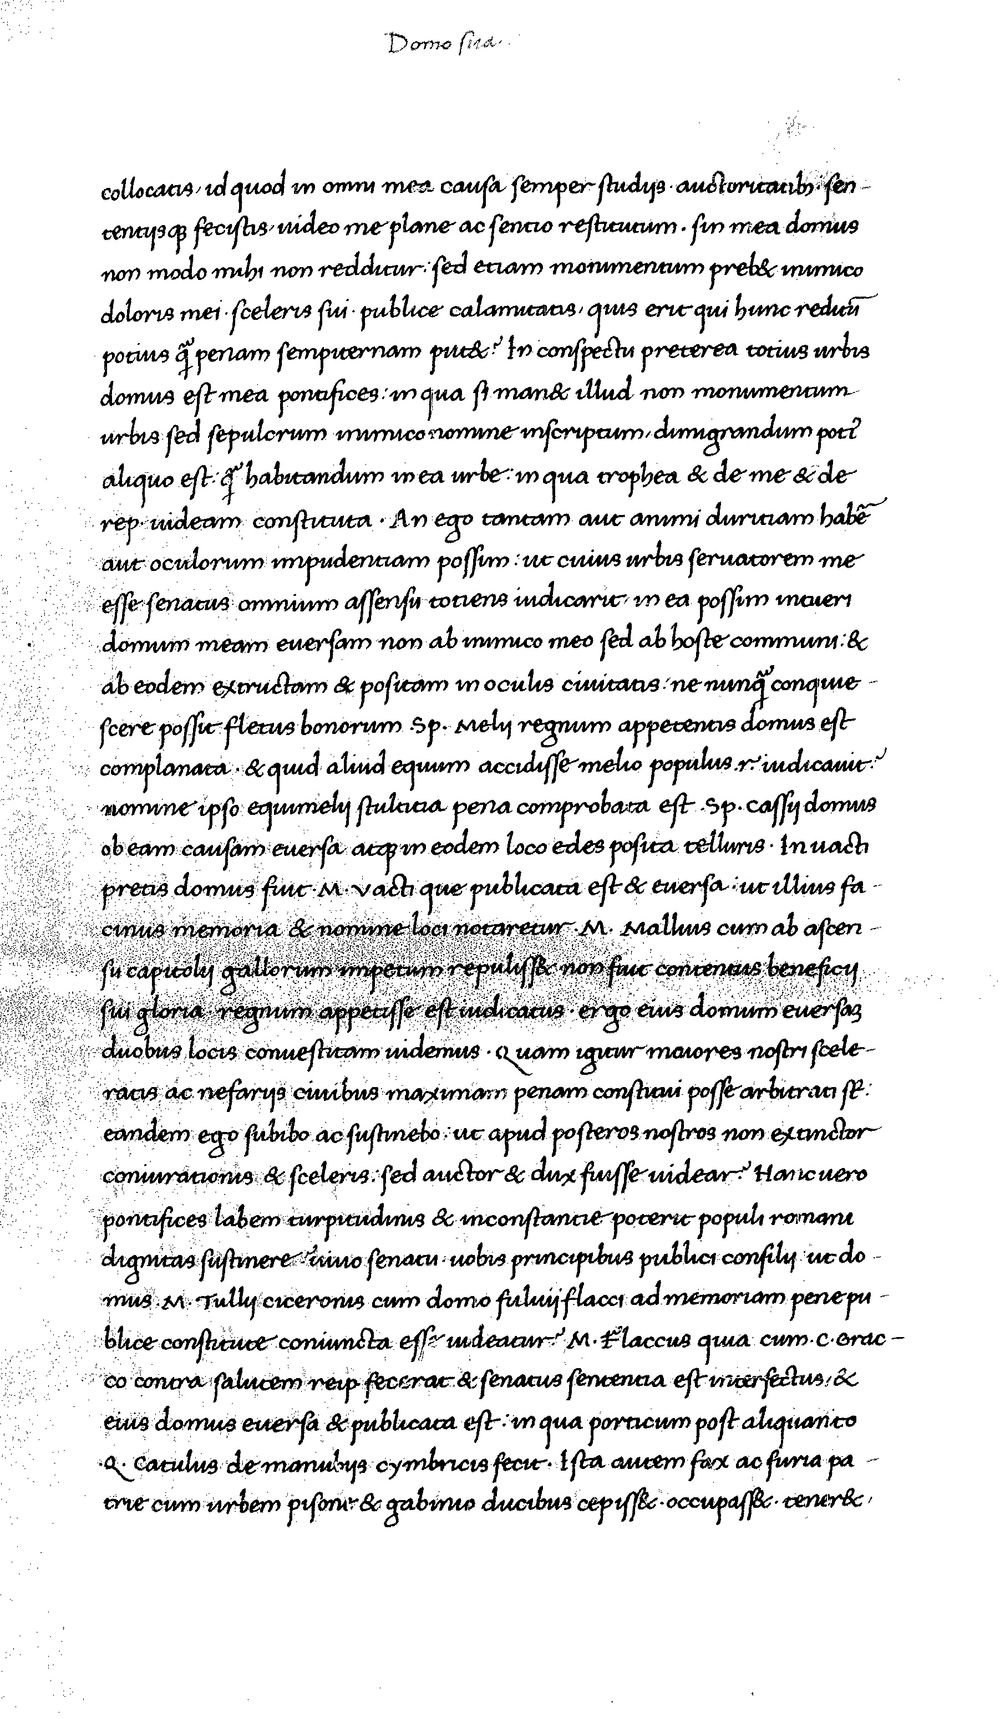 Domo sua.
collocatis, id quod in omni mea causa semper studijs · auctoritatib; · sen-
tentijsq; fecistis, uideo me plane ac sentio restitutum · sin mea domus
non modo mihi non redditur: sed etiam monumentum preb& inimico
doloris mei · sceleris sui · publice calamitatis, quis erit qui hunc reditū
potius q̄ penam sempiternam put&? In conspectu preterea totius urbis
domus est mea pontifices: in qua si man& illud non monumentum
urbis sed sepulcrum inimico nomine inscriptum, dimigrandum poti᾿
aliquo est: q̄ habitandum in ea urbe: in qua trophea & de me & de
rep· uideam constituta · An ego tantam aut animi duritiam habē
aut oculorum impudentiam possim: ut cuius urbis seruatorem me
esse senatus omnium assensu totiens iudicarit, in ea possim intueri
domum meam euersam non ab inimico meo sed ab hoste communi: &
ab eodem extructam & positam in oculis ciuitatis: ne nunq̄ conquie-
scere possit fletus bonorum Sp. Melij regnum appetentis domus est
complanata · & quid aliud equum accidisse melio populus .r. iudicauit?
nomine ipso equimelij stultitia pena comprobata est Sp. Cassij domus
ob eam causam euersa atq; in eodem loco edes posita telluris · In uacti
pretis domus fuit · M. Vacti que publicata est & euersa: ut illius fa-
cinus memoria & nomine loci notaretur M. Mallius cum ab ascen-
su capitolij gallorum impetum repuliss& non fuit contentus beneficij
sui gloria regnum appetisse est iudicatus · ergo eius domum euersaꝫ
duobus locis conuestitam uidemus · Quam igitur maiores nostri scele-
ratis ac nefarijs ciuibus maximam penam constitui posse arbitrati st̄:
eandem ego subibo ac sustinebo: ut apud posteros nostros non extinctor
coniurationis & sceleris: sed auctor & dux fuisse uidear? Hanc uero
pontifices labem turpitudinis & inconstantie poterit populi romani
dignitas sustinere uiuo senatu uobis principibus publici consilij ut do-
mus M. Tullij ciceronis cum domo fuluij flacci ad memoriam pene pu-
blice constitute coniuncta esse uideatur? M. Flaccus quia cum · C · Grac-
co contra salutem reip fecerat & senatus sententia est interfectus, &
eius domus euersa & publicata est: in qua porticum post aliquanto
Q. Catulus de manubijs cymbricis fecit · Ista autem fax ac furia pa-
trie cum urbem pisone & gabinio ducibus cepiss& · occupass& · tener&,